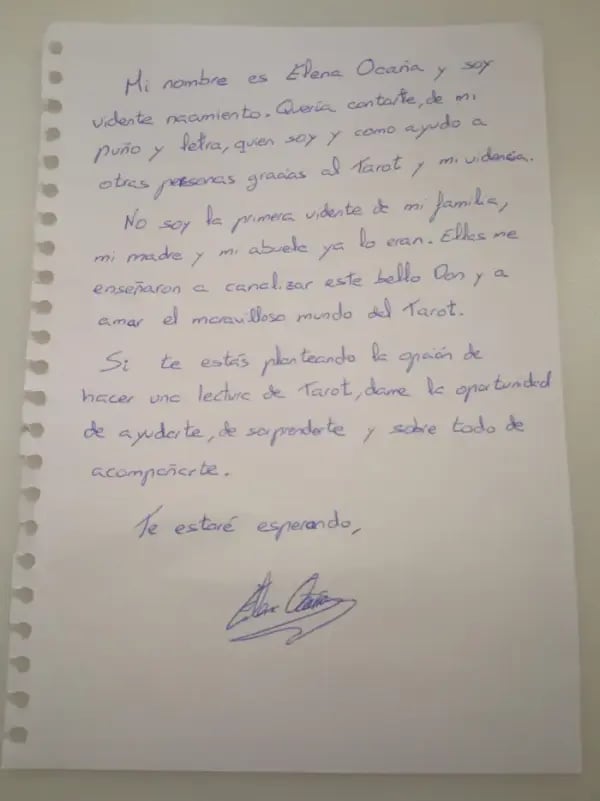 Mi nombre es Elena Ocaña y soy
vidente nacimiento. Quería contarte, de mi
puño y letra, quien soy y como ayudo a
otras personas gracias al Tarot y mi videncia.
No soy la primera vidente de mi familia,
mi madre y mi abuela ya lo eran. Ellas me
enseñaron a canalizar este bello Don y a
amar el maravilloso mundo del Tarot.
Si te estás planteando la opción de
hacer una lectura de Tarot, dame la oportunidad
de ayudarte, de sorprenderte y sobre todo de
acompañarte.
Te estaré esperando,
Elena Ocaña